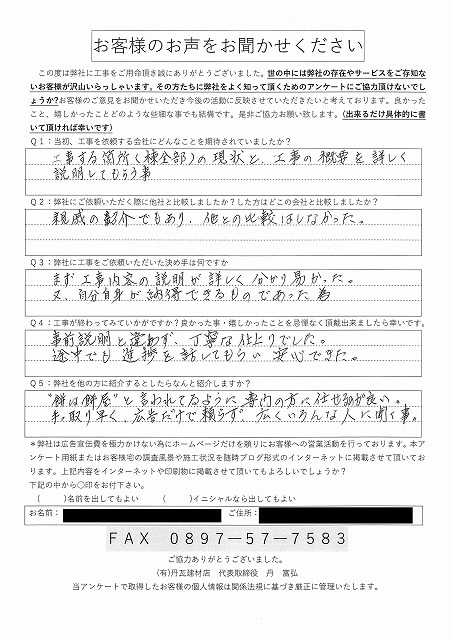 お客様のお声をお聞かせください
この度は弊社に工事をご用命頂き誠にありがとうございました。世の中には弊社の存在やサービスをご存知な
いお客様が沢山いらっしゃいます。その方たちに弊社をよく知って頂くためのアンケートにご協力頂けないでし
ょうか?お客様のご意見をお聞かせいただき今後の活動に反映させていただきたいと考えております。良かった
こと、嬉しかったことどのような些細な事でも結構です。是非ご協力お願い致します。(出来るだけ具体的に書
いて頂ければ幸いです)
Q1:当初、工事を依頼する会社にどんなことを期待されていましたか?
工事する箇所(棟全部)の現状と、工事の概要を詳しく
説明してもらう事
Q2:弊社にご依頼いただく際に他社と比較しましたか?した方はどこの会社と比較しましたか?
親戚の紹介でもあり、他との比較はしなかった。
Q3:弊社に工事をご依頼いただいた決め手は何ですか
まず工事内容の説明が詳しく分かり易かった。
又、自分自身が納得できるものであった為
Q4:工事が終わってみていかがですか?良かった事・嬉しかったことを忌憚なく頂戴出来ましたら幸いです。
事前説明と違わず、丁寧な仕上りでした。
途中でも進捗を話してもらい安心できた。
Q5:弊社を他の方に紹介するとしたらなんと紹介しますか?
"餅は餅屋"と言われてるように専門の方に任せるが良い。
手っ取り早く、広告だけで頼らず、広くいろんな人に聞く事。
*弊社は広告宣伝費を極力かけない為にホームページだけを頼りにお客様への営業活動を行っております。本ア
ンケート用紙またはお客様宅の調査風景や施工状況を随時ブログ形式のインターネットに掲載させて頂いてお
ります。上記内容をインターネットや印刷物に掲載させて頂いてもよろしいでしょうか?
下記の中から〇印をお付下さい。
(　　)名前を出してもよい　(　　)イニシャルなら出してもよい
お名前:　ご住所:
FAX 0897-57-7583
ご協力ありがとうございました。
(有)丹瓦建材店 代表取締役 丹 富弘
当アンケートで取得したお客様の個人情報は関係法規に基づき厳正に管理いたします。